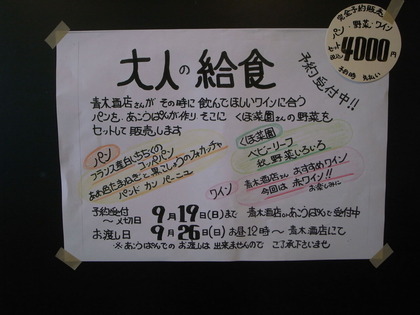 完全予約販売
パン・野菜・ワイン
セット 税込
4000円
予約時 先払い
予約受付中!!
大人の給食
青木酒店さんが その時に 飲んでほしいワインに合う
パンを、あこうぱんが作り そこに くぼ菜園さんの野菜を
セットして販売します
パン
フランス産白いちじくの
コッペパン
あめ色たまねぎと 黒こしょうのフォカッチャ
パンド カンパーニュ
くぼ菜園
ベビーリーフ
秋野菜いろいろ
ワイン
青木酒店さん おすすめワイン
今回は 赤ワイン!! お楽しみに
予約受付
〜〆切日 9月19日(日)まで 青木酒店か あこうぱんで受付中
お渡し日 9月26日(日) お昼12時〜 青木酒店にて
※あこうぱんでの お渡しは 出来ませんので ご了承下さいませ